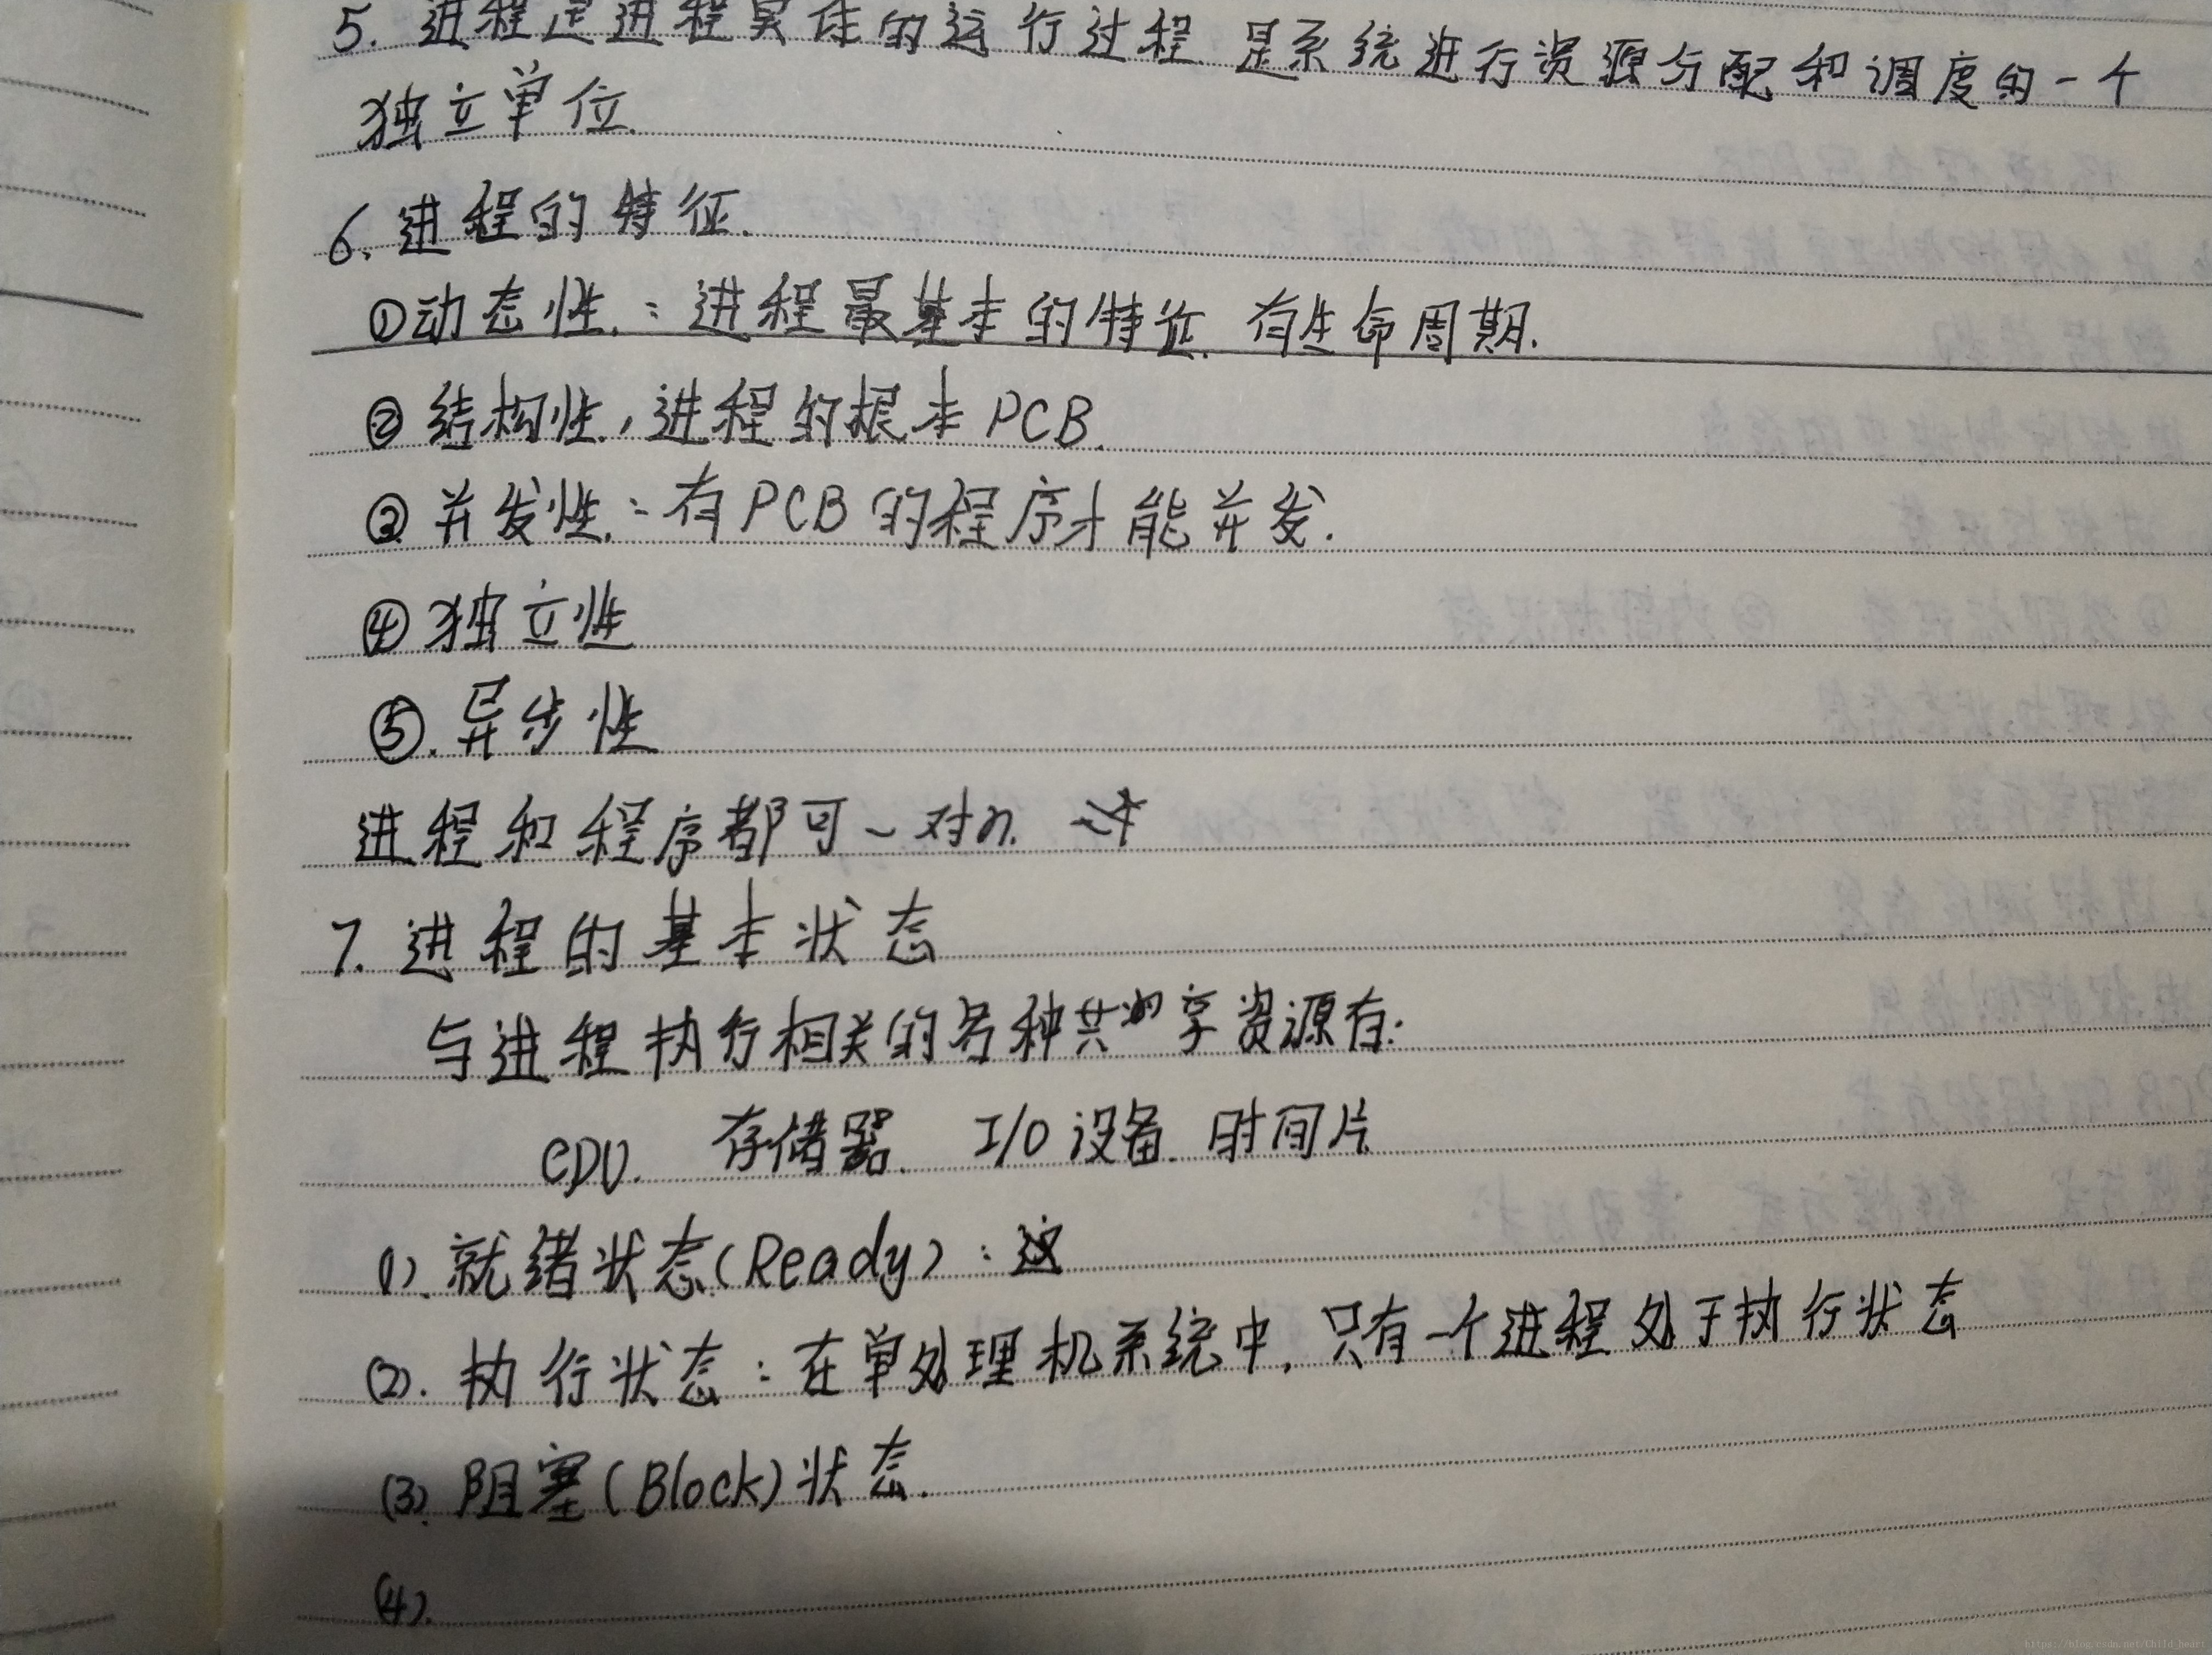 5. 进程是进程实体的运行过程. 是系统进行资源分配和调度的一个
独立单位.
6. 进程的特征.
①动态性.: 进程最基本的特征. 有生命周期.
② 结构性, 进程的根本PCB.
③ 并发性.: 有PCB的程序才能并发.
④ 独立性
⑤. 异步性
进程和程序都可一对n.
7. 进程的基本状态
与进程执行相关的各种共享资源有:
CPU. 存储器. I/O设备. 时间片
(1). 就绪状态(Ready): 这
(2). 执行状态: 在单处理机系统中, 只有一个进程处于执行状态
(3). 阻塞(Block)状态.
(4).
https://blog.csdn.net/Child_heart